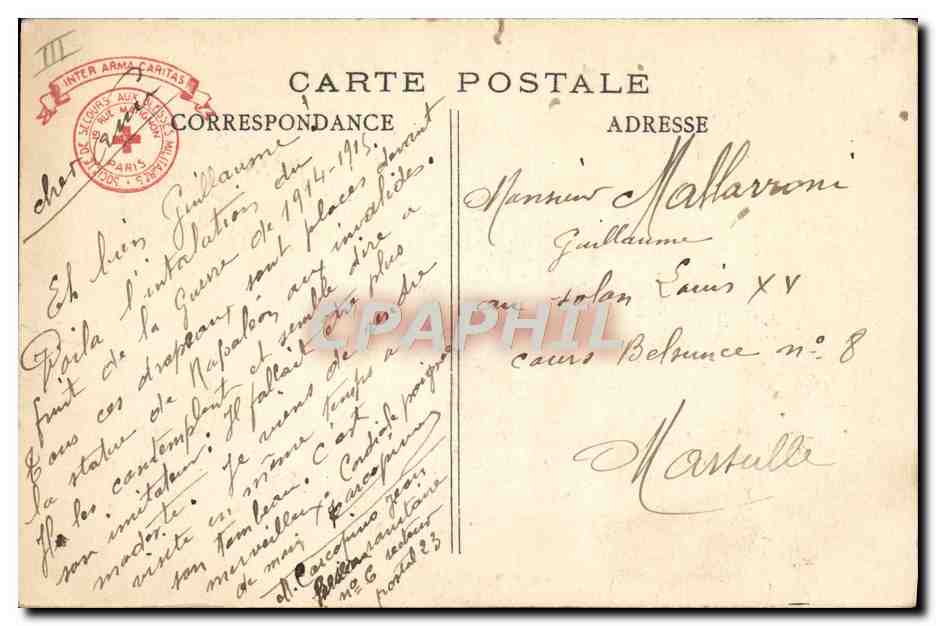 III
INTER ARMA CARITAS
SOCIÉTÉ DE SECOURS AUX BLESSÉS MILITAIRES
19 RUE MATIGNON
PARIS
CARTE POSTALE
CORRESPONDANCE
ADRESSE
cher ami
Eh bien Guillaume!
Voila l'intolation du
fruit de la Guerre de 1914-1915.
Tous ces drapeaux sont places devant
la statue de Napoleón aux invalides.
Il les contemplent et semble dire a
son imitateur: Il fallait etre plus
modeste. Je viens de les dre
visite en même temps a
son tombeau. C'est
merveilleux. Cordiale poignée
de main Carcopino
M. Carcopino Jean
sanitaire
nº 6 secteur
postal 23
Monsieur Mallarroni
Guillaume
au solon Louis XV
cours Belsunce nº 8
Marseille
CPAPHIL